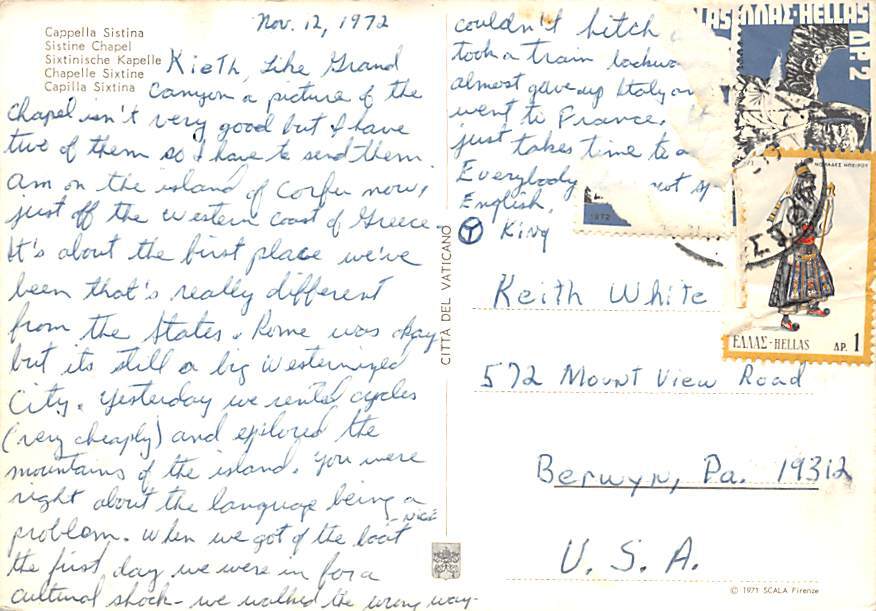 Cappella Sistina
Sistine Chapel
Sixtinische Kapelle
Chapelle Sixtine
Capilla Sixtina
Nov. 12, 1972
Kieth, Like Grand
Canyon a picture of the
chapel isn't very good but I have
two of them so I have to send them.
Am on the island of Corfu now,
just off the western coast of Greece.
It's about the first place we've
been that's really different
from the States. Rome was okay
but its still a big westernized
City. Yesterday we rented cycles
(very cheaply) and explored the
mountains of the island. You were
right about the language being a
problem. When we got of the boat
- NICE
the first day we were in for a
cultural shock - we walked the wrong way -
couldn't hitch
took a train
almost gave up Italy
went to France.
just takes time to
Everybody not
English.
King
CITTÀ DEL VATICANO
Keith White
572 Mount View Road
Berwyn, Pa. 19312
U. S. A.
© 1971 SCALA Firenze
ΕΛΛΑΣ-HELLAS
ΔΡ. 2
1972
ΕΛΛΑΣ-HELLAS ΔΡ. 1